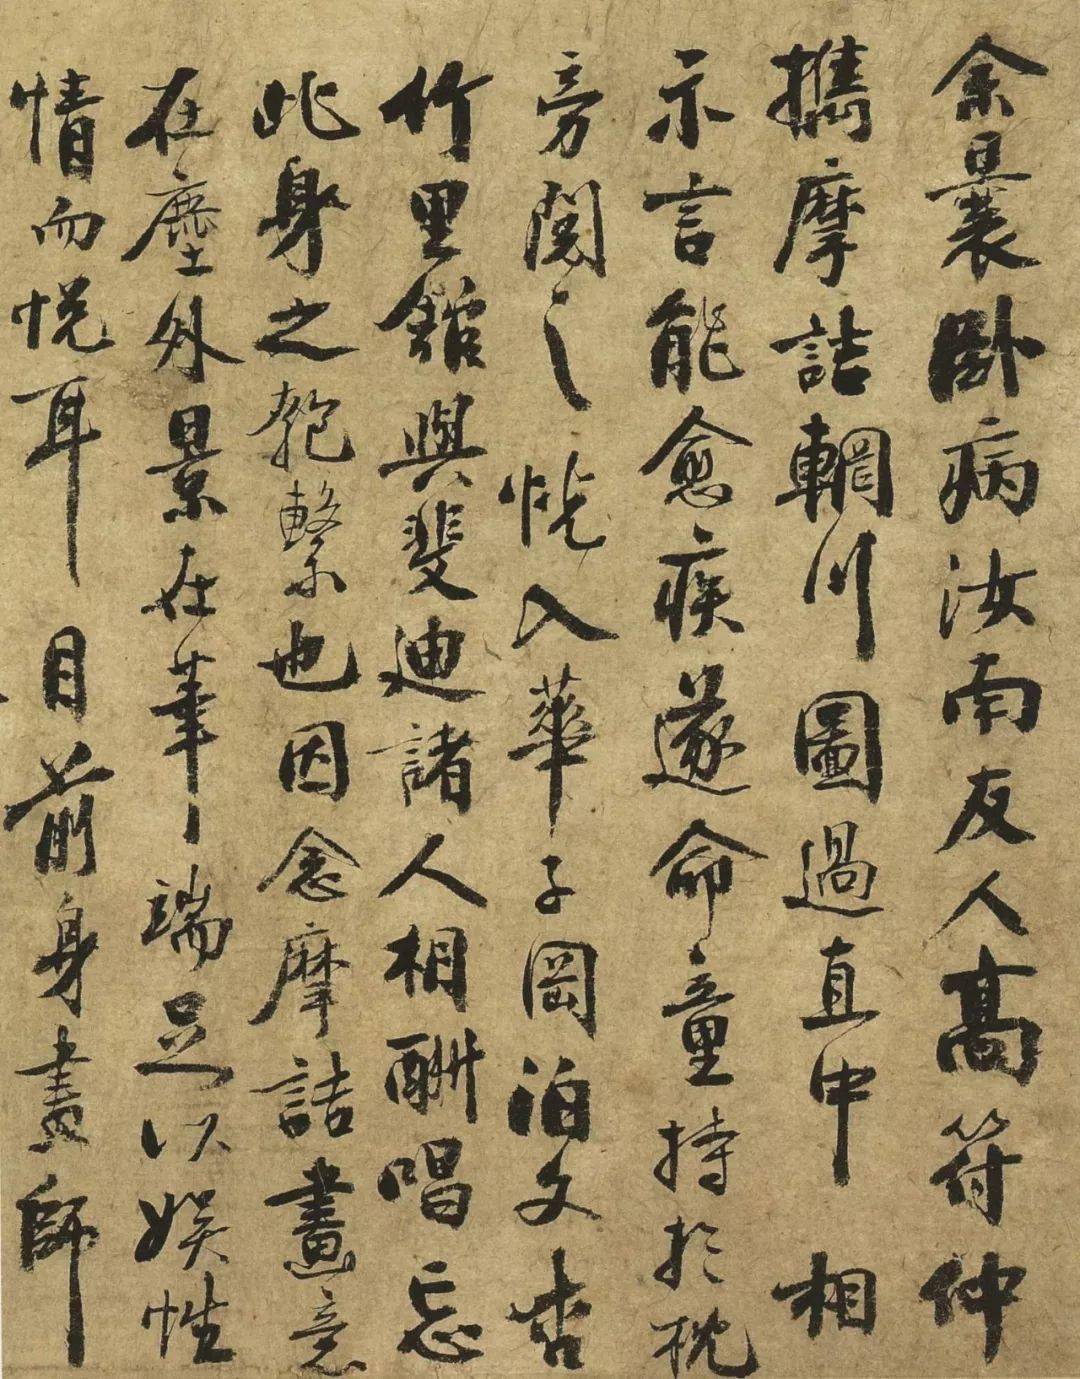 余曩卧病汝南友人高符仲
攜摩詰輞川圖過直中相
示言能愈疾遂命童持於枕
旁閱之恍入華子岡泊文杏
竹里館與斐迪諸人相酬唱忘
此身之匏繫也因念摩詰畫意
在塵外景在筆端足以娛性
情而悦耳目前身畫師